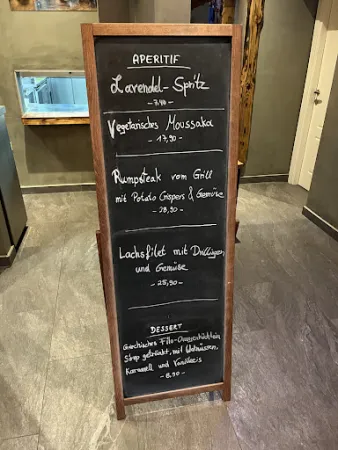 APERITIF
Lavendel-Spritz
- 7,90 -
Vegetarisches Moussaka
- 17,90 -
Rumpsteak vom Grill
mit Potato Crispers & Gemüse
- 28,90 -
Lachsfilet mit Drillingen
und Gemüse
- 25,90 -
DESSERT
Griechisches Filo-
Sirup getränkt, mit Walnüssen,
Karamell und Vanilleeis
- 8,90 -